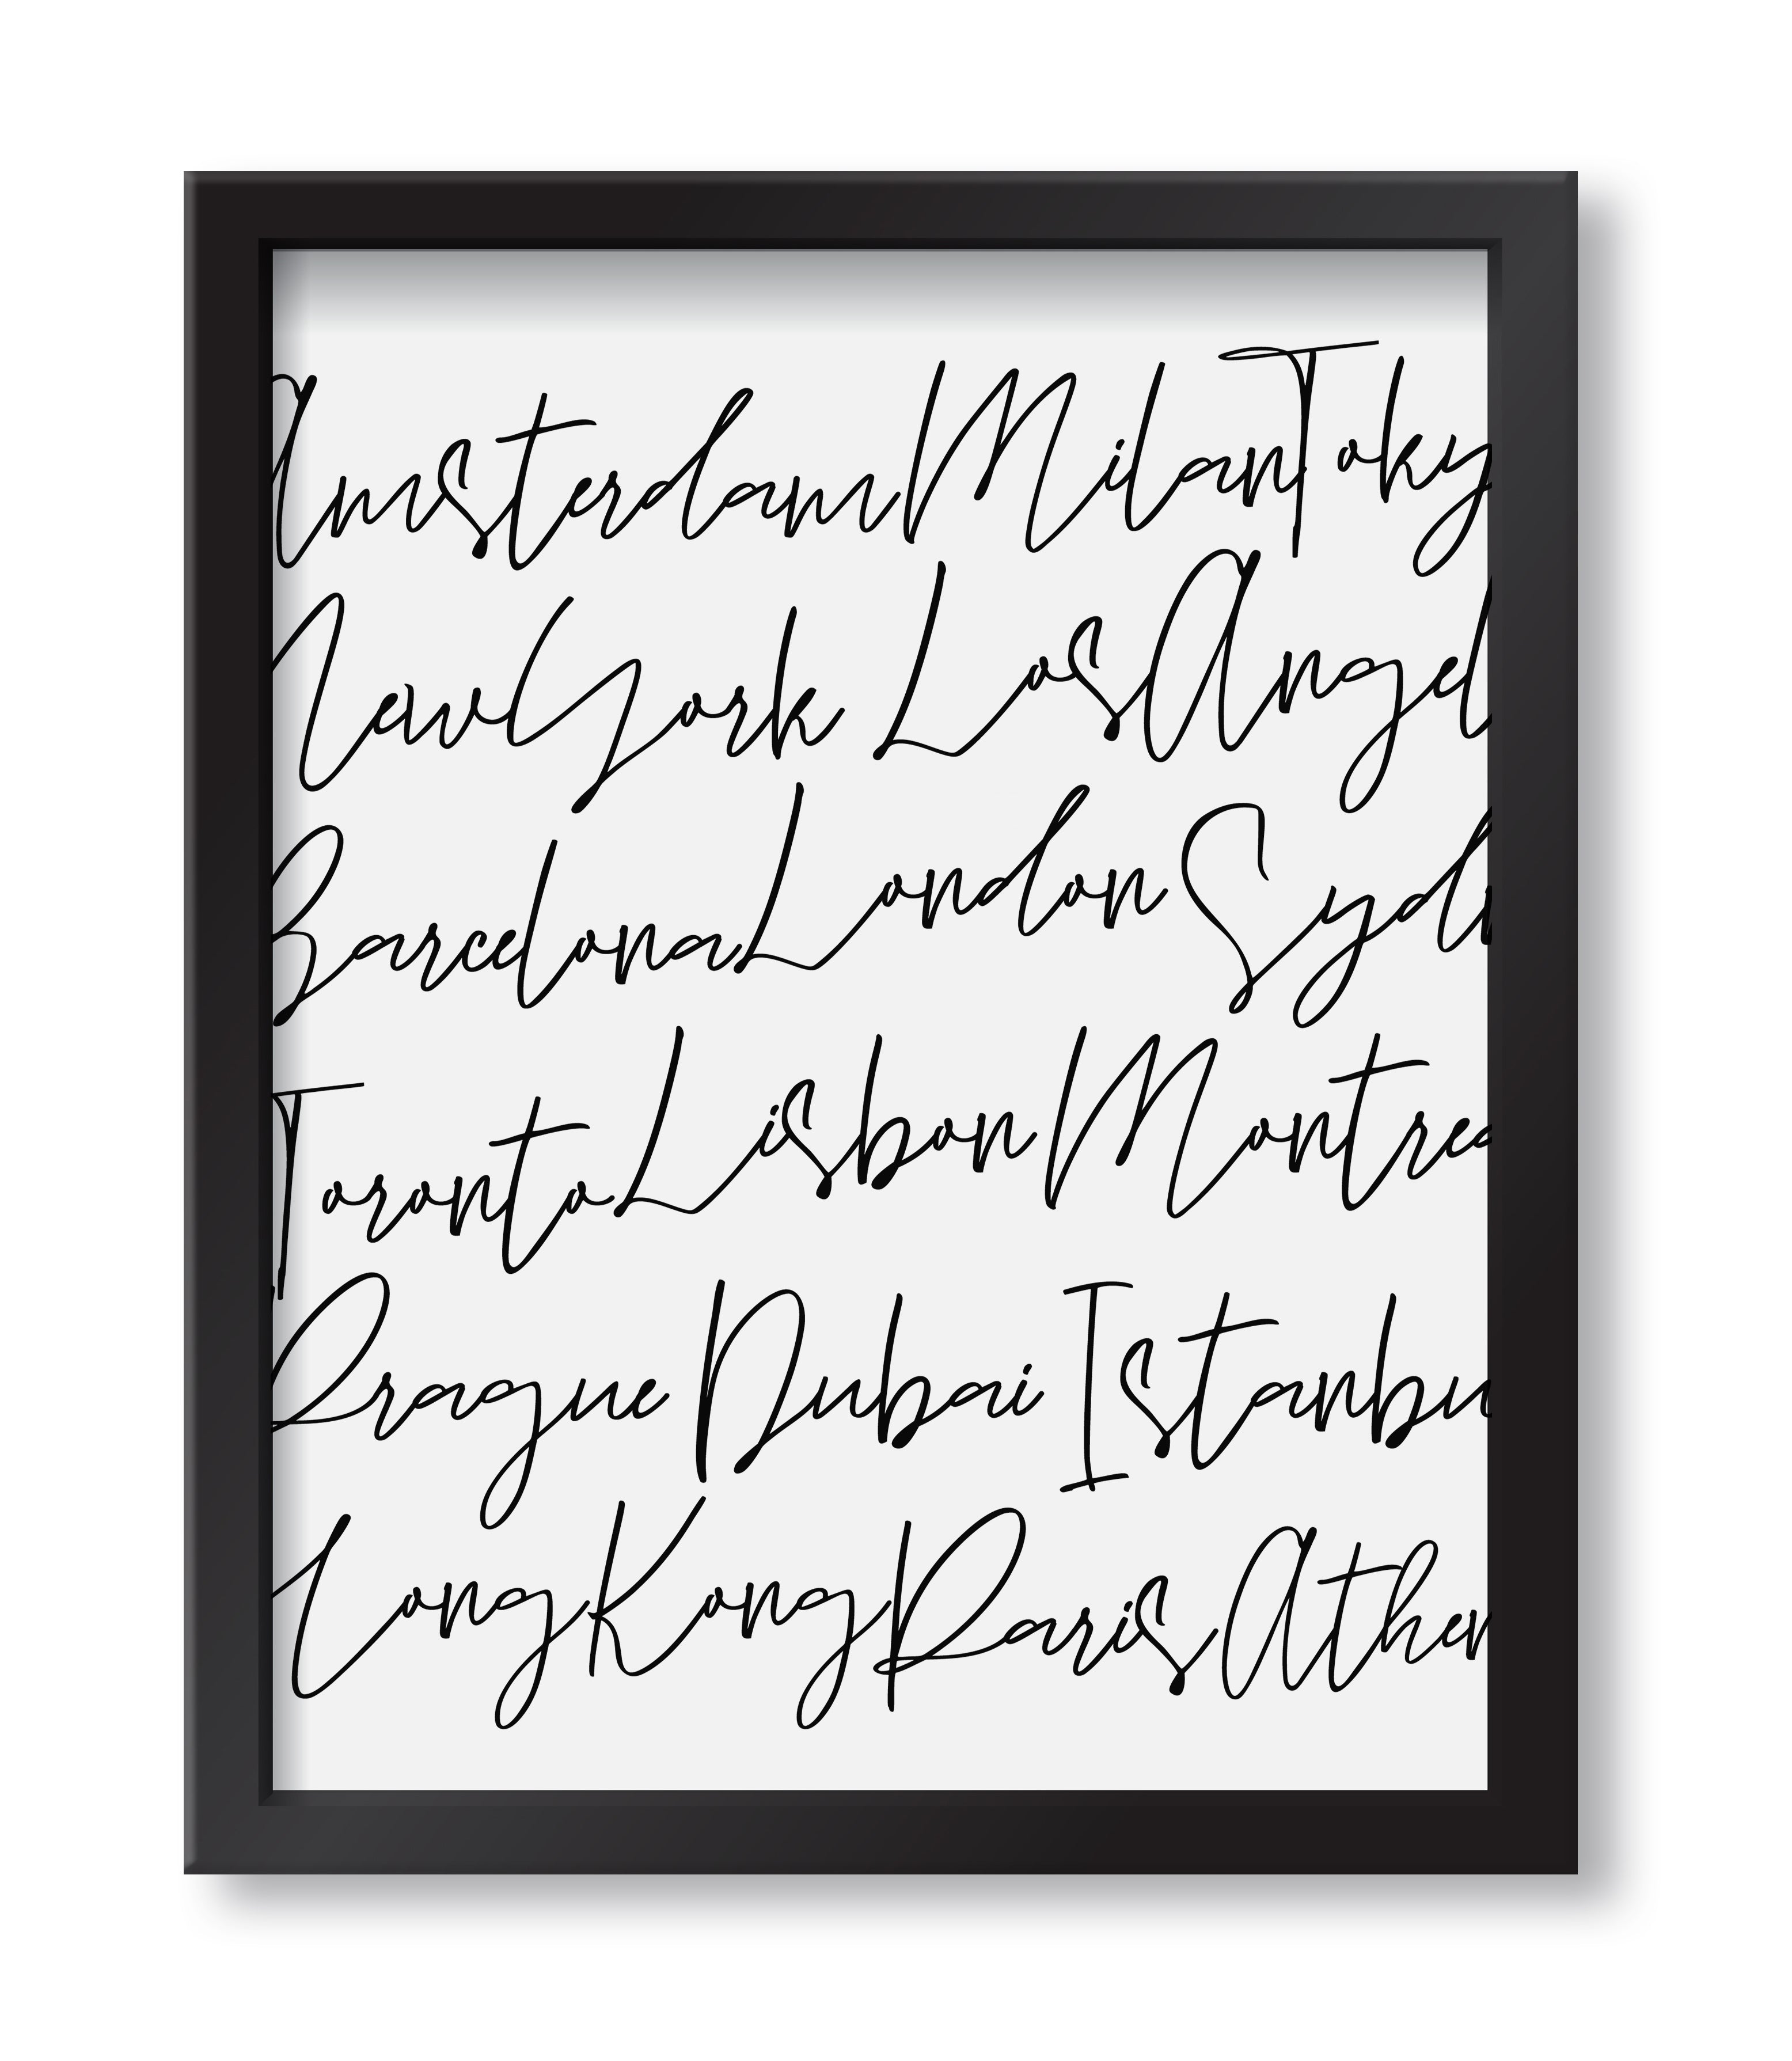 Amsterdam Milan Toky
New York Los Angel
Barcelona London Syd
Toronto Lisbon Montrea
Prague Dubai Istanbu
Hong Kong Paris Athen